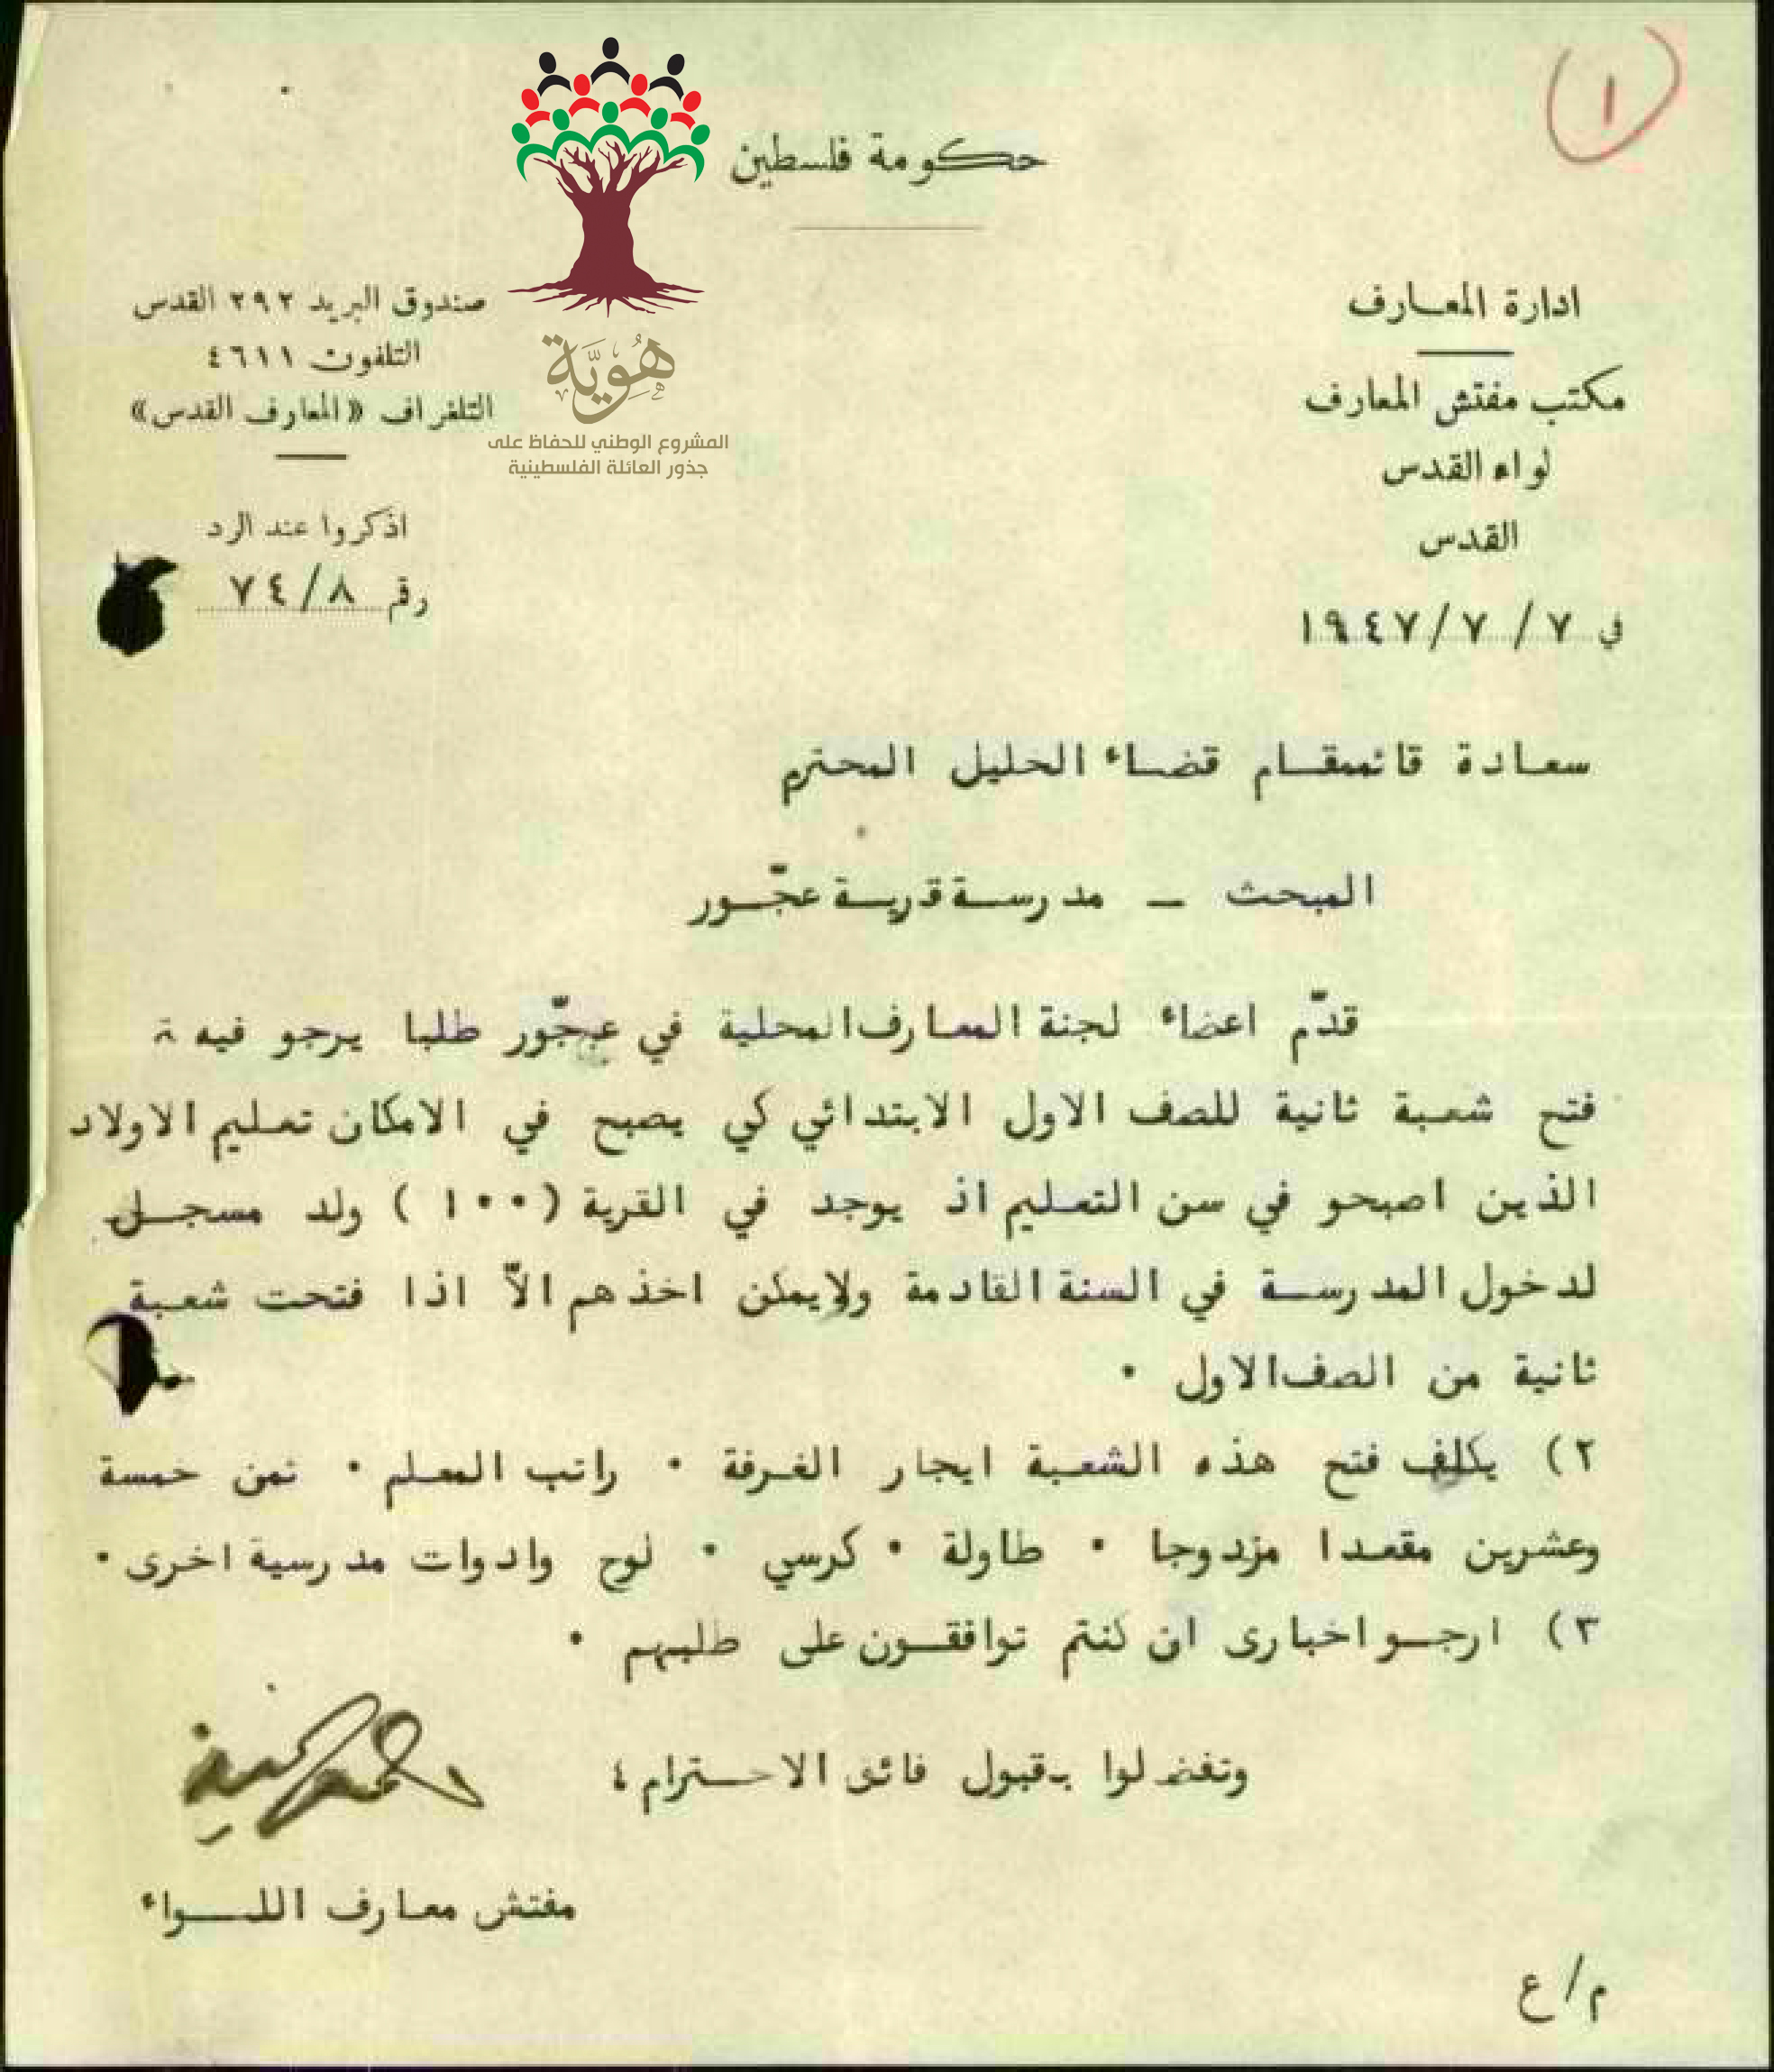 ١
حكومة فلسطين
هُوِيَّة
المشروع الوطني للحفاظ على
جذور العائلة الفلسطينية
ادارة المعارف
مكتب مفتش المعارف
لواء القدس
القدس
في ٧/ ٧/ ١٩٤٧
صندوق البريد ٢٩٢ القدس
التلفون ٤٦١١
التلغراف «المعارف القدس»
اذكروا عند الرد
رقم ٧٤/٨
سعادة قائمقام قضاء الخليل المحترم
المبحث – مدرسة قرية عجّور
قدّم اعضاء لجنة المعارف المحلية في عجّور طلبا يرجو فيه
فتح شعبة ثانية للصف الاول الابتدائي كي يصبح في الامكان تعليم الاولاد
الذين اصبحو في سن التعليم اذ يوجد في القرية (١٠٠) ولد مسجل
لدخول المدرسة في السنة القادمة ولايمكن اخذهم الاّ اذا فتحت شعبة
ثانية من الصف الاول ٠
٢) يكلف فتح هذه الشعبة ايجار الغرفة ٠ راتب المعلم ٠ ثمن خمسة
وعشرين مقعدا مزدوجا ٠ طاولة ٠ كرسي ٠ لوح وادوات مدرسية اخرى ٠
٣) ارجو اخبارى ان كنتم توافقون على طلبهم ٠
وتفضلوا بقبول فائق الاحترام ؛
مفتش معارف اللواء
م/ع